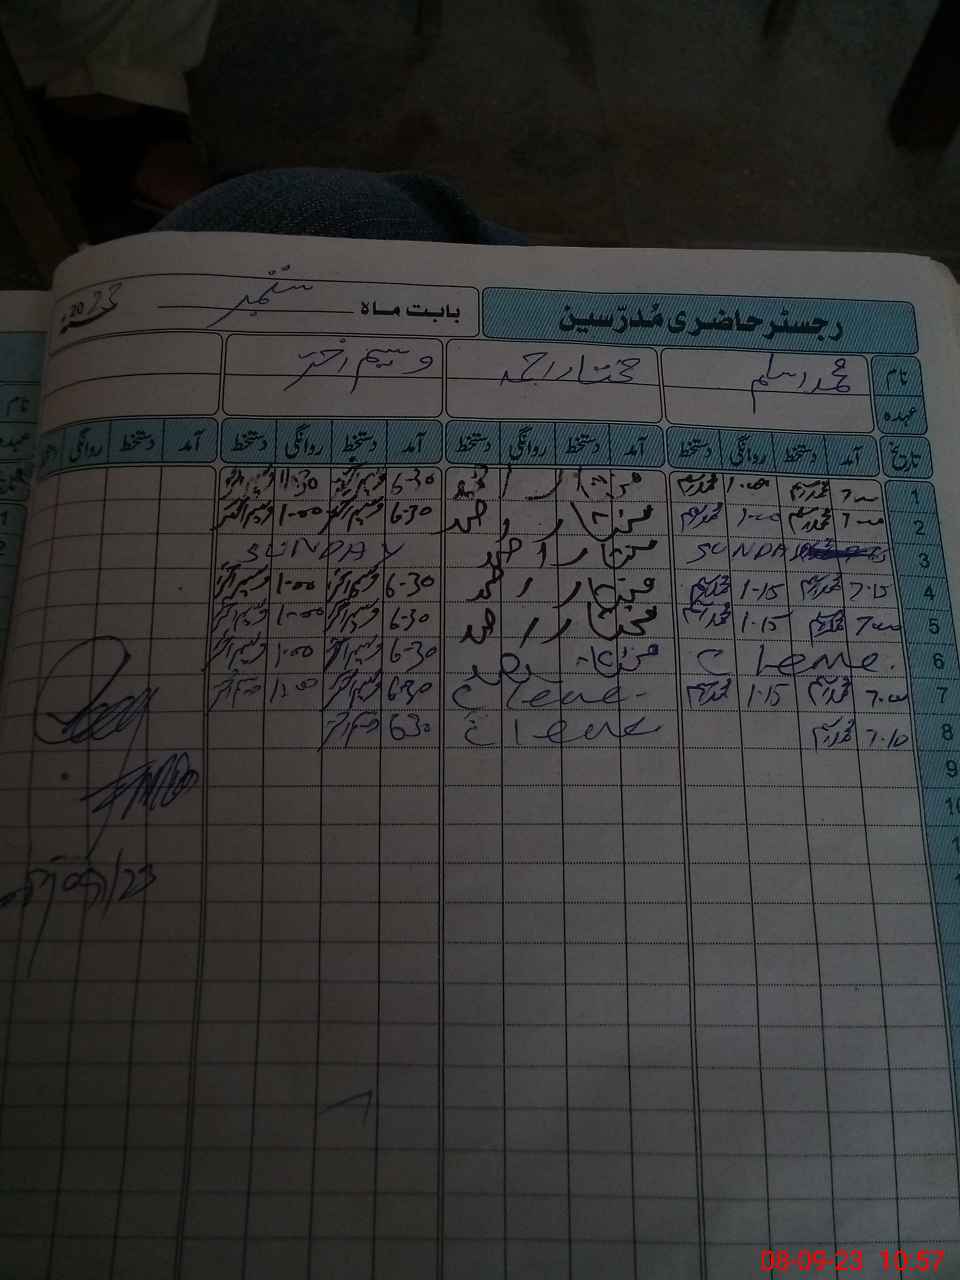 رجسٹر حاضری مُدرّسین بابت ماہ ستمبر 2023ء
نام محمد اسلم مختار احمد وسیم اختر
عہدہ
تاریخ آمد دستخط روانگی دستخط آمد دستخط روانگی دستخط آمد دستخط روانگی دستخط آمد دستخط روانگی
1 7-00 محمد اسلم 1-00 محمد اسلم مختار احمد 6-30 وسیم اختر 11-30 وسیم اختر
2 7-00 محمد اسلم 1-00 محمد اسلم مختار احمد 6-30 وسیم اختر 1-00 وسیم اختر
3 SUNDAY مختار احمد SUNDAY
4 7-15 محمد اسلم 1-15 محمد اسلم مختار احمد 6-30 وسیم اختر 1-00 وسیم اختر
5 7-00 محمد اسلم 1-15 محمد اسلم مختار احمد 6-30 وسیم اختر 1-00 وسیم اختر
6 C leave. مختار احمد 6-30 وسیم اختر 1-00 وسیم اختر
7 7-00 محمد اسلم 1-15 محمد اسلم C leave- 6-30 وسیم اختر 1-00 وسیم اختر
8 7-10 محمد اسلم C leave 630 وسیم اختر
9
10
08-09-23 10:57